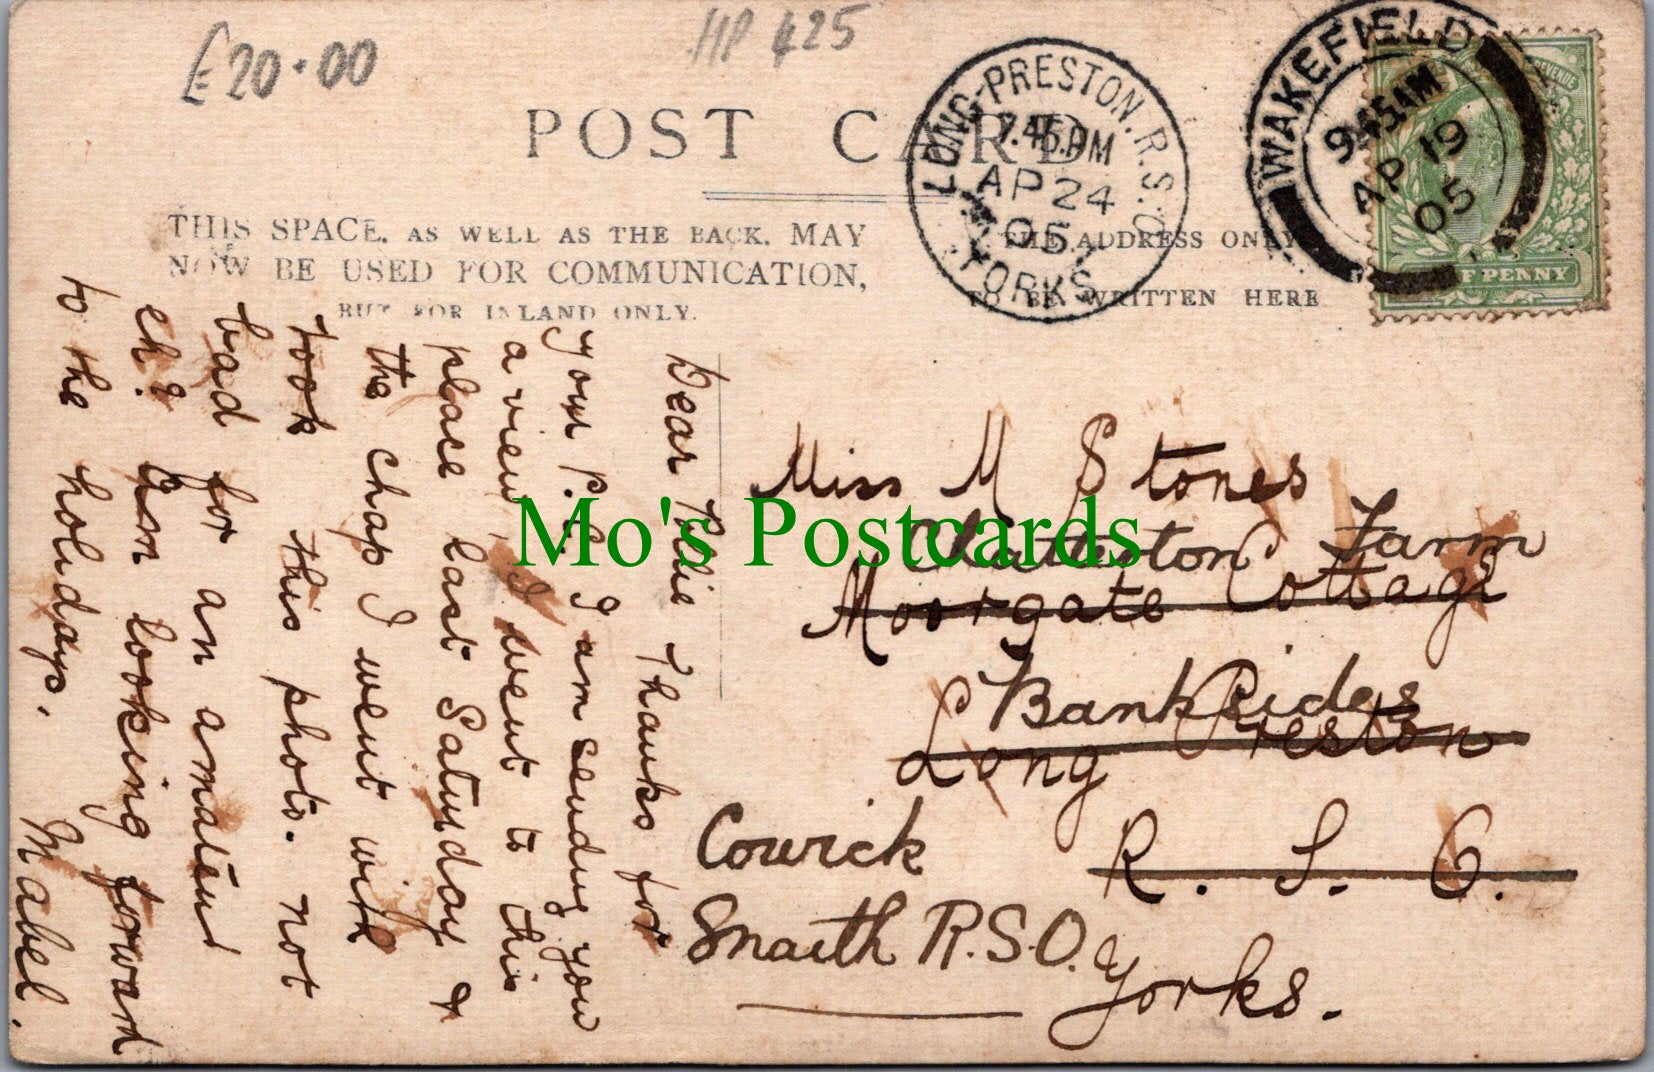 £20.00
HP 425
POST CARD
THIS SPACE, AS WELL AS THE BACK, MAY
NOW BE USED FOR COMMUNICATION,
BUT FOR INLAND ONLY.
THE ADDRESS ONLY
TO BE WRITTEN HERE
LONG-PRESTON. R.S.O.
7.45 PM
AP 24
05
YORKS
WAKEFIELD
9.45 AM
AP 19
05
HALFPENNY
Dear Thanks for
your P.C. I am sending you
a view, I went to this
place last Saturday &
the chap I went with
took this photo. not
bad for an amateur
eh? Am looking forward
to the holidays.
Mabel.
Miss M Stones
Chatterton Farm
Moorgate Cottage
Banksides
Long Preston
Cowick
R. S. O.
Snaith R.S.O.
Yorks.
Mo's Postcards